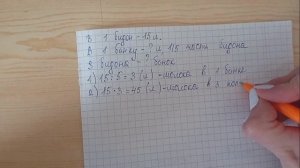 В 1 бидон - 15 л.
В 1 банку - ? л, 1/5 часть бидона
3 бидона - ? банок
1) 15:5=3 (л) - молока в 1 банке
2) 15·3=45 (л) - молока в 3